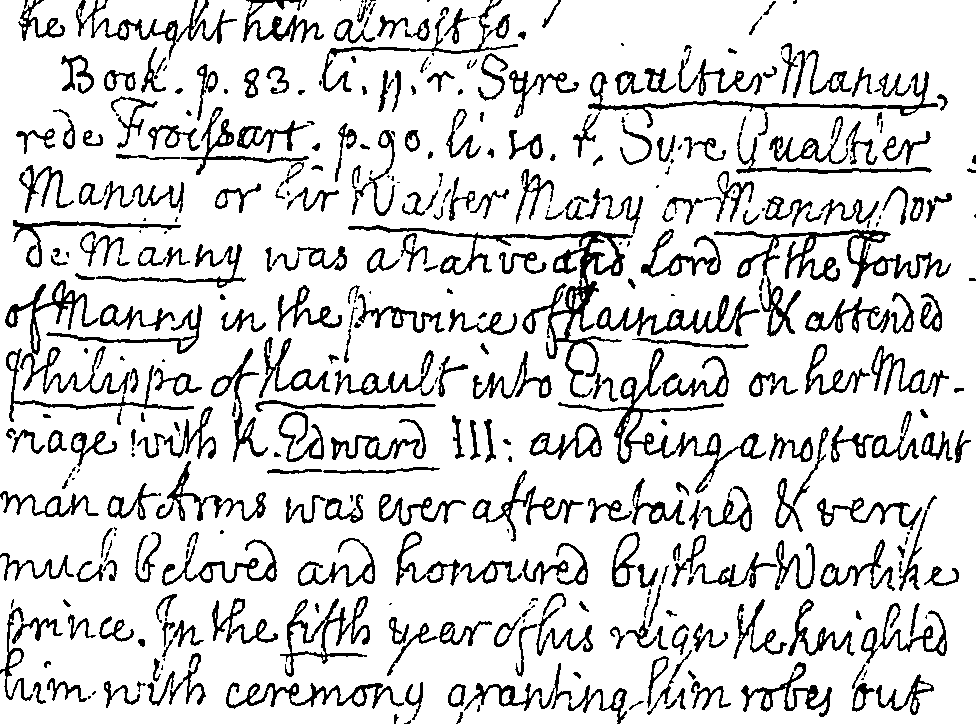 he thought him almost so.
Book. p. 83. li. 11. r. Syre gaultier Manuy,
rede Froissart. p. 90. li. 10. r. Syre Gualtier
Manuy or Sir Walter Many or Manny, or
de Manny was a Native and Lord of the Town
of Manny in the province of Hainault & attended
Philippa of Hainault into England on her Mar-
riage with K. Edward III: and being a most valiant
man at Arms was ever after retained & very
much beloved and honoured by that Warlike
prince. In the fifth year of his reign He knighted
him with ceremony granting him robes out